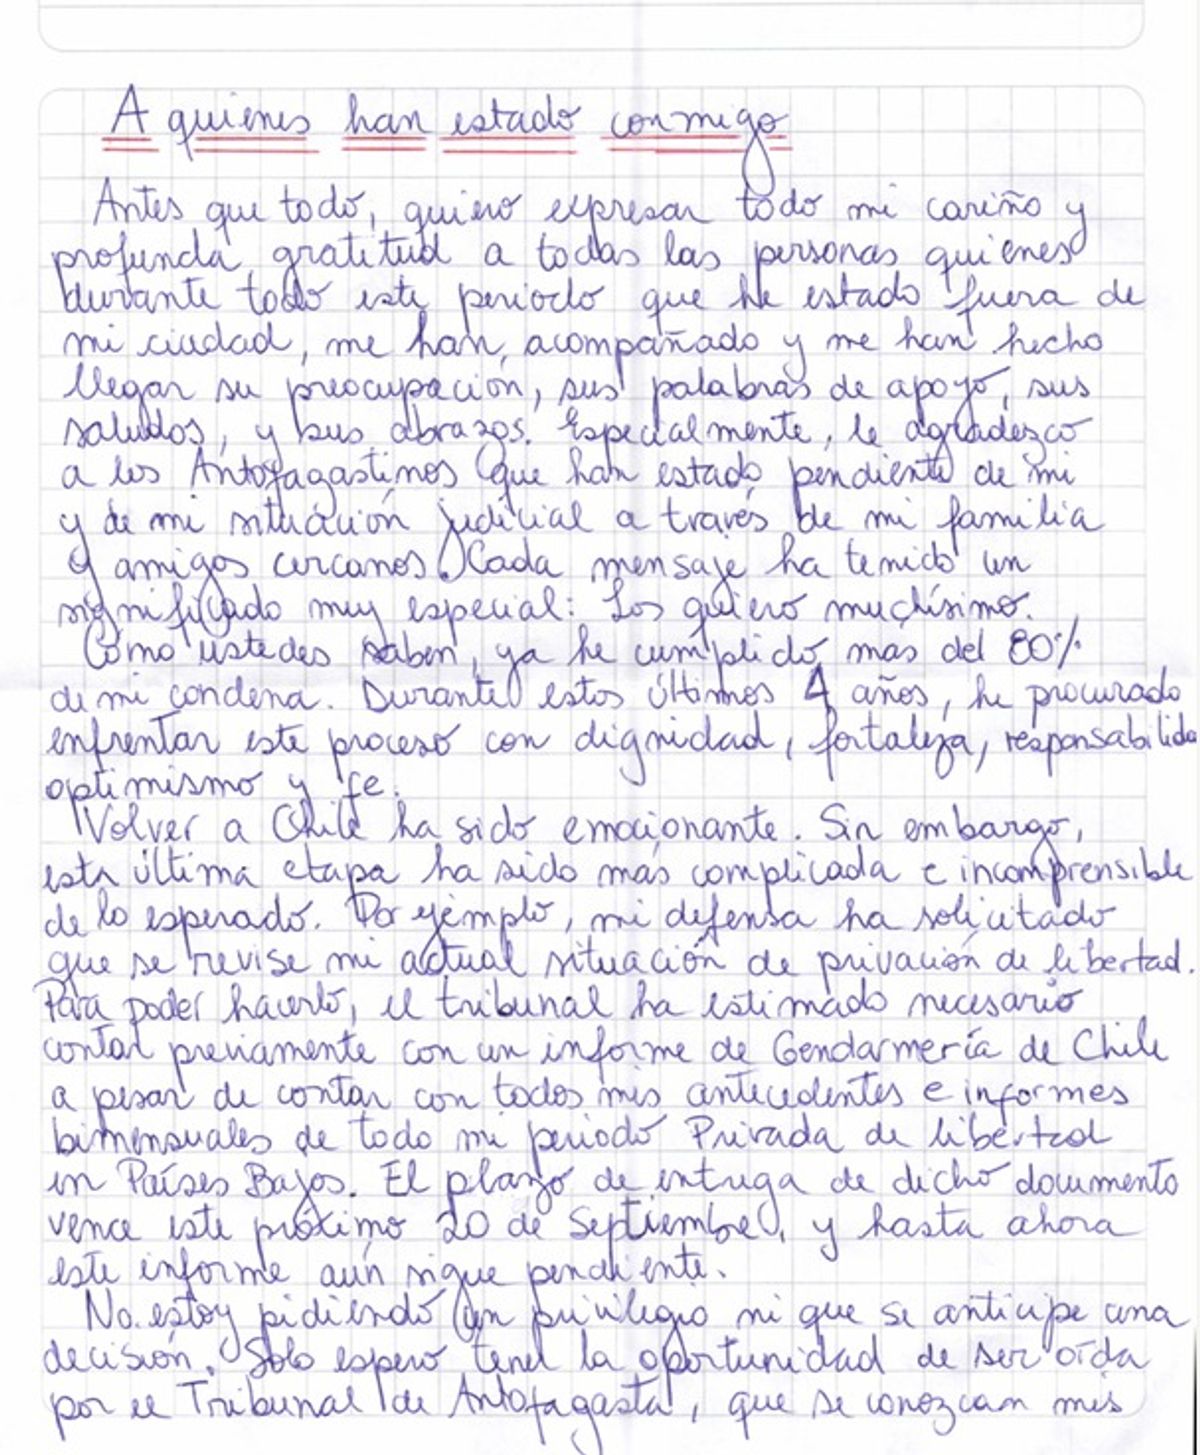 A quienes han estado conmigo
Antes que todo, quiero expresar todo mi cariño y
profunda gratitud a todas las personas quienes
durante todo este periodo que he estado fuera de
mi ciudad, me han acompañado y me han hecho
llegar su preocupación, sus palabras de apoyo, sus
saludos, y sus abrazos. Especialmente, le agradezco
a los Antofagastinos que han estado pendiente de mi
y de mi situación judicial a través de mi familia
y amigos cercanos. Cada mensaje ha tenido un
significado muy especial: Los quiero muchísimo.
Como ustedes saben, ya he cumplido más del 80%
de mi condena. Durante estos últimos 4 años, he procurado
enfrentar este proceso con dignidad, fortaleza, responsabilida
optimismo y fe.
Volver a Chile ha sido emocionante. Sin embargo,
esta última etapa ha sido más complicada e incomprensible
de lo esperado. Por ejemplo, mi defensa ha solicitado
que se revise mi actual situación de privación de libertad.
Para poder hacerlo, el tribunal ha estimado necesario
contar previamente con un informe de Gendarmería de Chile
a pesar de contar con todos mis antecedentes e informes
bimensuales de todo mi periodo Privada de libertad
en Países Bajos. El plazo de entrega de dicho documento
vence este próximo 20 de Septiembre, y hasta ahora
este informe aún sigue pendiente.
No estoy pidiendo un privilegio ni que se anticipe una
decisión. Solo espero tener la oportunidad de ser oída
por el Tribunal de Antofagasta, que se conozcan mis